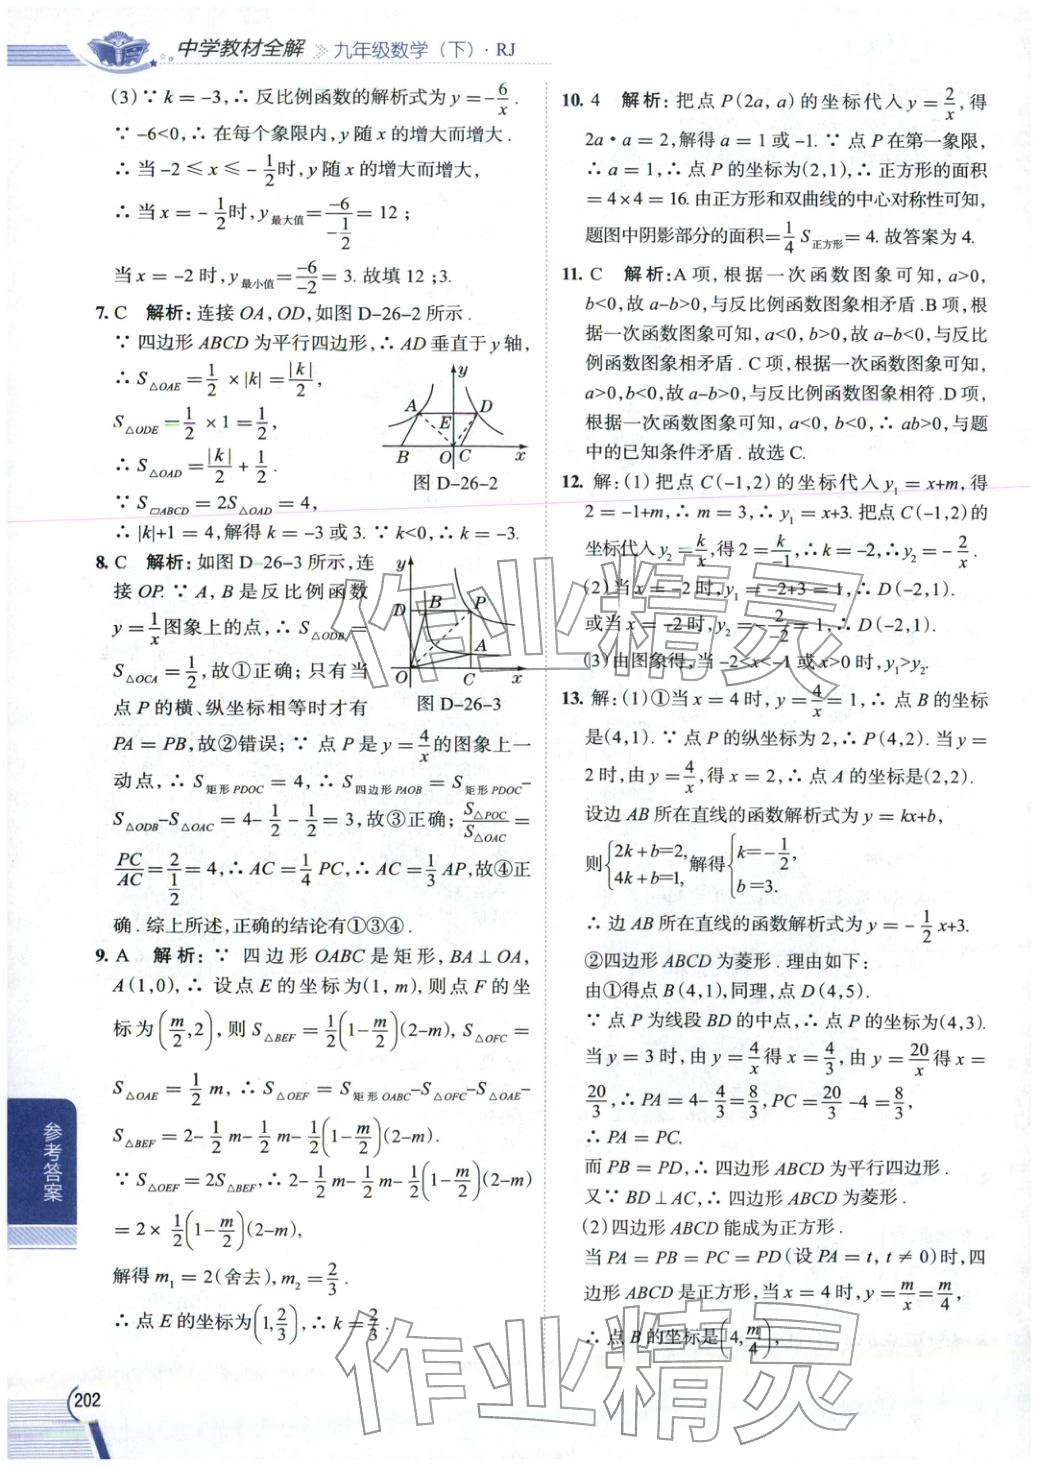 中学教材全解 九年级数学（下）· RJ
(3)∵ k = -3,∴ 反比例函数的解析式为 y = -6/x .
∵ -6<0,∴ 在每个象限内, y 随 x 的增大而增大 .
∴ 当 -2 ≤ x ≤ -1/2 时, y 随 x 的增大而增大,
∴ 当 x = -1/2 时, y最大值 = -6/(-1/2) = 12 ;
当 x = -2 时, y最小值 = -6/-2 = 3. 故填 12 ;3.
7. C 解析: 连接 OA, OD, 如图 D-26-2 所示 .
∵ 四边形 ABCD 为平行四边形,∴ AD 垂直于 y 轴,
∴ S△OAE = 1/2 ×|k| = |k|/2 ,
S△ODE = 1/2 × 1 = 1/2 ,
∴ S△OAD = |k|/2 + 1/2 .
∵ S▱ABCD = 2S△OAD = 4,
y
A
D
E
B
O
C
x
图 D-26-2
∴ |k|+1 = 4, 解得 k = -3 或 3. ∵ k<0,∴ k = -3.
8. C 解析: 如图 D-26-3 所示, 连
接 OP. ∵ A, B 是反比例函数
y = 1/x 图象上的点,∴ S△ODB =
S△OCA = 1/2 , 故①正确; 只有当
点 P 的横、纵坐标相等时才有
y
D
B
P
A
O
C
x
图 D-26-3
PA = PB, 故②错误; ∵ 点 P 是 y = 4/x 的图象上一
动点,∴ S矩形PDOC = 4,∴ S四边形PAOB = S矩形PDOC-
S△ODB-S△OAC = 4- 1/2 - 1/2 = 3, 故③正确; S△POC/S△OAC =
PC/AC = 2/(1/2) = 4,∴ AC = 1/4 PC,∴ AC = 1/3 AP, 故④正
确 . 综上所述, 正确的结论有①③④ .
9. A 解析: ∵ 四边形 OABC 是矩形, BA⊥OA,
A(1,0),∴ 设点 E 的坐标为(1, m), 则点 F 的坐
标为(m/2,2), 则 S△BEF = 1/2(1-m/2)(2-m), S△OFC =
S△OAE = 1/2 m,∴ S△OEF = S矩形OABC-S△OFC-S△OAE-
S△BEF = 2- 1/2 m- 1/2 m- 1/2(1-m/2)(2-m).
∵ S△OEF = 2S△BEF,∴ 2- 1/2 m- 1/2 m- 1/2(1-m/2)(2-m)
= 2× 1/2(1-m/2)(2-m),
解得 m1 = 2(舍去), m2 = 2/3 .
∴ 点 E 的坐标为(1,2/3),∴ k = 2/3 .
10. 4 解析: 把点 P(2a, a)的坐标代入 y = 2/x, 得
2a·a = 2, 解得 a = 1 或 -1. ∵ 点 P 在第一象限,
∴ a = 1,∴ 点 P 的坐标为(2,1),∴ 正方形的面积
= 4×4 = 16. 由正方形和双曲线的中心对称性可知,
题图中阴影部分的面积= 1/4 S正方形 = 4. 故答案为 4.
11. C 解析: A 项, 根据一次函数图象可知, a>0,
b<0, 故 a-b>0, 与反比例函数图象相矛盾 .B 项, 根
据一次函数图象可知, a<0, b>0, 故 a-b<0, 与反比
例函数图象相矛盾 . C 项, 根据一次函数图象可知,
a>0,b<0, 故 a-b>0, 与反比例函数图象相符 .D 项,
根据一次函数图象可知, a<0, b<0,∴ ab>0, 与题
中的已知条件矛盾 . 故选 C.
12. 解: (1)把点 C(-1,2)的坐标代入 y1 = x+m, 得
2 = -1+m,∴ m = 3,∴ y1 = x+3. 把点 C(-1,2)的
坐标代入 y2 = k/x, 得 2 = k/-1,∴ k = -2,∴ y2 = -2/x .
(2)当 x = -2 时, y1 = -2+3 = 1,∴ D(-2,1).
或当 x = -2 时, y2 = -2/-2 = 1,∴ D(-2,1).
(3)由图象得, 当 -2<x<-1 或 x>0 时, y1>y2.
13. 解: (1)①当 x = 4 时, y = 4/x = 1,∴ 点 B 的坐标
是(4,1). ∵ 点 P 的纵坐标为 2,∴ P(4,2). 当 y =
2 时, 由 y = 4/x, 得 x = 2,∴ 点 A 的坐标是(2,2).
设边 AB 所在直线的函数解析式为 y = kx+b,
则{2k+b=2, 4k+b=1, 解得{k=-1/2, b=3.
∴ 边 AB 所在直线的函数解析式为 y = -1/2 x+3.
②四边形 ABCD 为菱形 . 理由如下:
由①得点 B(4,1), 同理, 点 D(4,5).
∵ 点 P 为线段 BD 的中点,∴ 点 P 的坐标为(4,3).
当 y = 3 时, 由 y = 4/x 得 x = 4/3, 由 y = 20/x 得 x =
20/3,∴ PA = 4- 4/3 = 8/3, PC = 20/3 -4 = 8/3,
∴ PA = PC.
而 PB = PD,∴ 四边形 ABCD 为平行四边形 .
又∵ BD⊥AC,∴ 四边形 ABCD 为菱形 .
(2)四边形 ABCD 能成为正方形 .
当 PA = PB = PC = PD(设 PA = t, t ≠ 0)时, 四
边形 ABCD 是正方形, 当 x = 4 时, y = m/x = m/4,
∴ 点 B 的坐标是(4,m/4),
参考答案
202
作业精灵
作业精灵